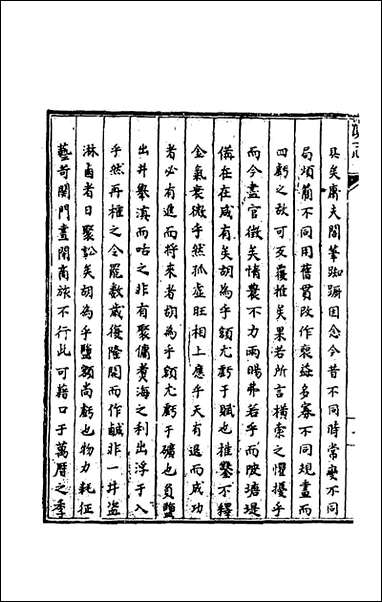 具矣庸夫閣筆踟蹰因念今昔不同時常變不同
局煩簡不同用舊貫改作裒益多寡不同規畫而
四虧之故可反覆推矣果若所言橫索之懼擾乎
而今盡官徵矣惰農不力兩暘弗若乎而陂塘堤
僃在在咸有矣胡為乎額尤虧于賦也椎鑿不釋
金氣衰微乎然孤虛旺相上應乎天有退而成功
者必有進而將來者胡為乎額尤虧于礦也負鹽
出井舉滇而咕之非有聚傭煑海之利出浮于入
乎然再榷之令罷數歲復隆開而作鹹非一井盜
淋鹵者日聚訟矣胡為乎鹽額尚虧也物力耗征
藝苛関門晝閉商旅不行此可藉口于萬曆之季